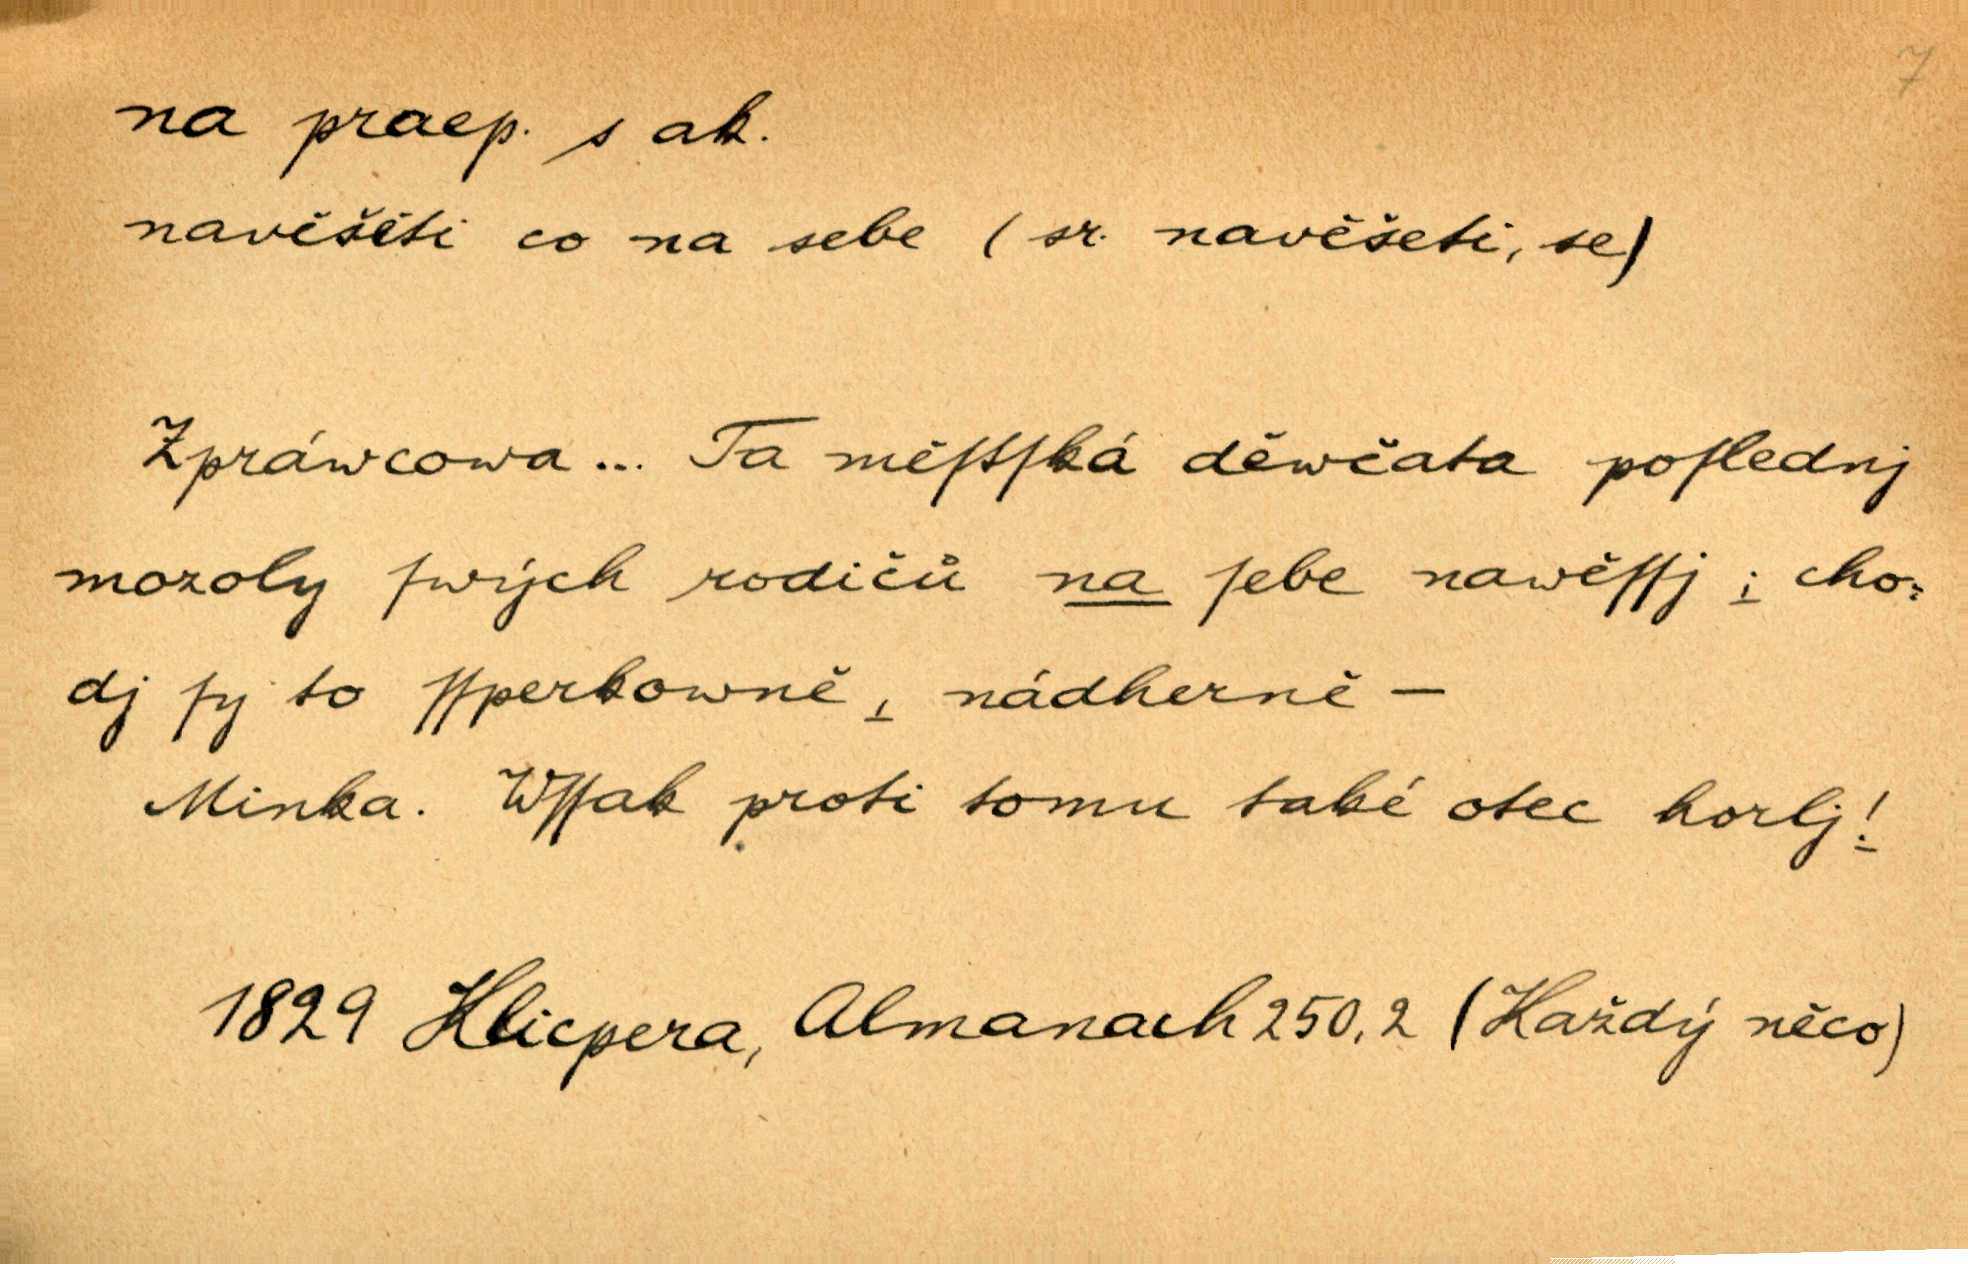 7
na praep. s ak.
navěšěti co na sebe (sr. navěšeti, se)
Zpráwcowa... Ta měſtſká děwčata poſlednj
mozoly ſwých rodičů na ſebe nawěſſj; cho-
dj ſy to ſſperkowně, nádherně —
Minka. Wſſak proti tomu také otec horlj!
1829 Klicpera, Almanach 250,2 (Každý něco)